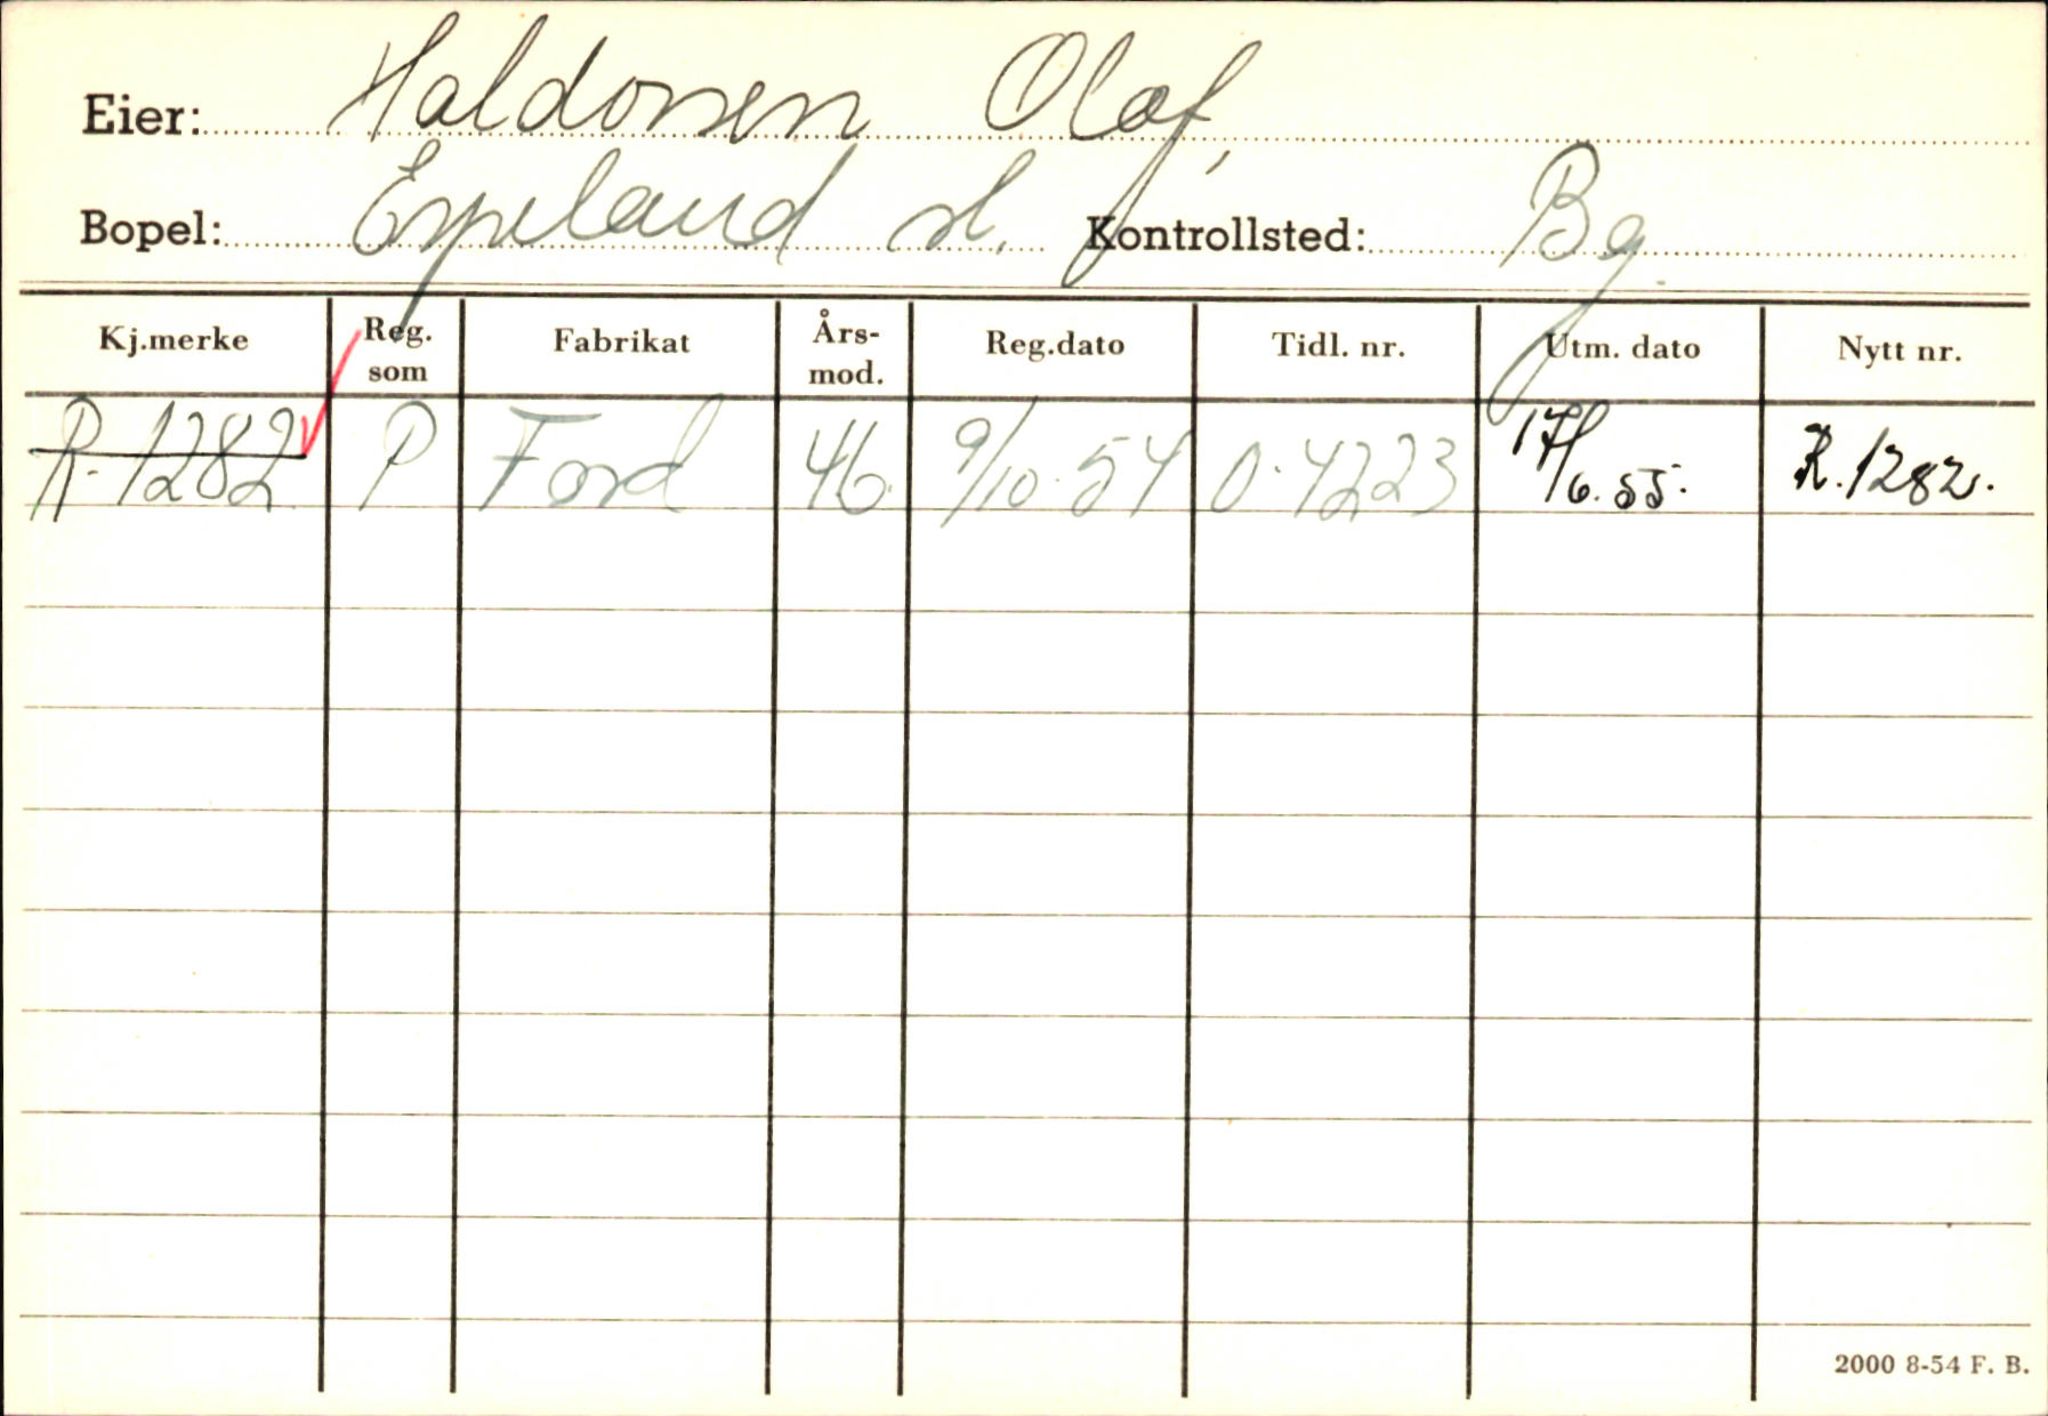 Eier: Haldorsen Olaf,
Bopel: Espeland st. Kontrollsted: Bg.
Kj.merke Reg. som Fabrikat Års-mod. Reg.dato Tidl. nr. Utm. dato Nytt nr.
R-1282 P Ford 46. 9/10.54 O.4223 17/6.55. R.1282.
2000 8-54 F. B.